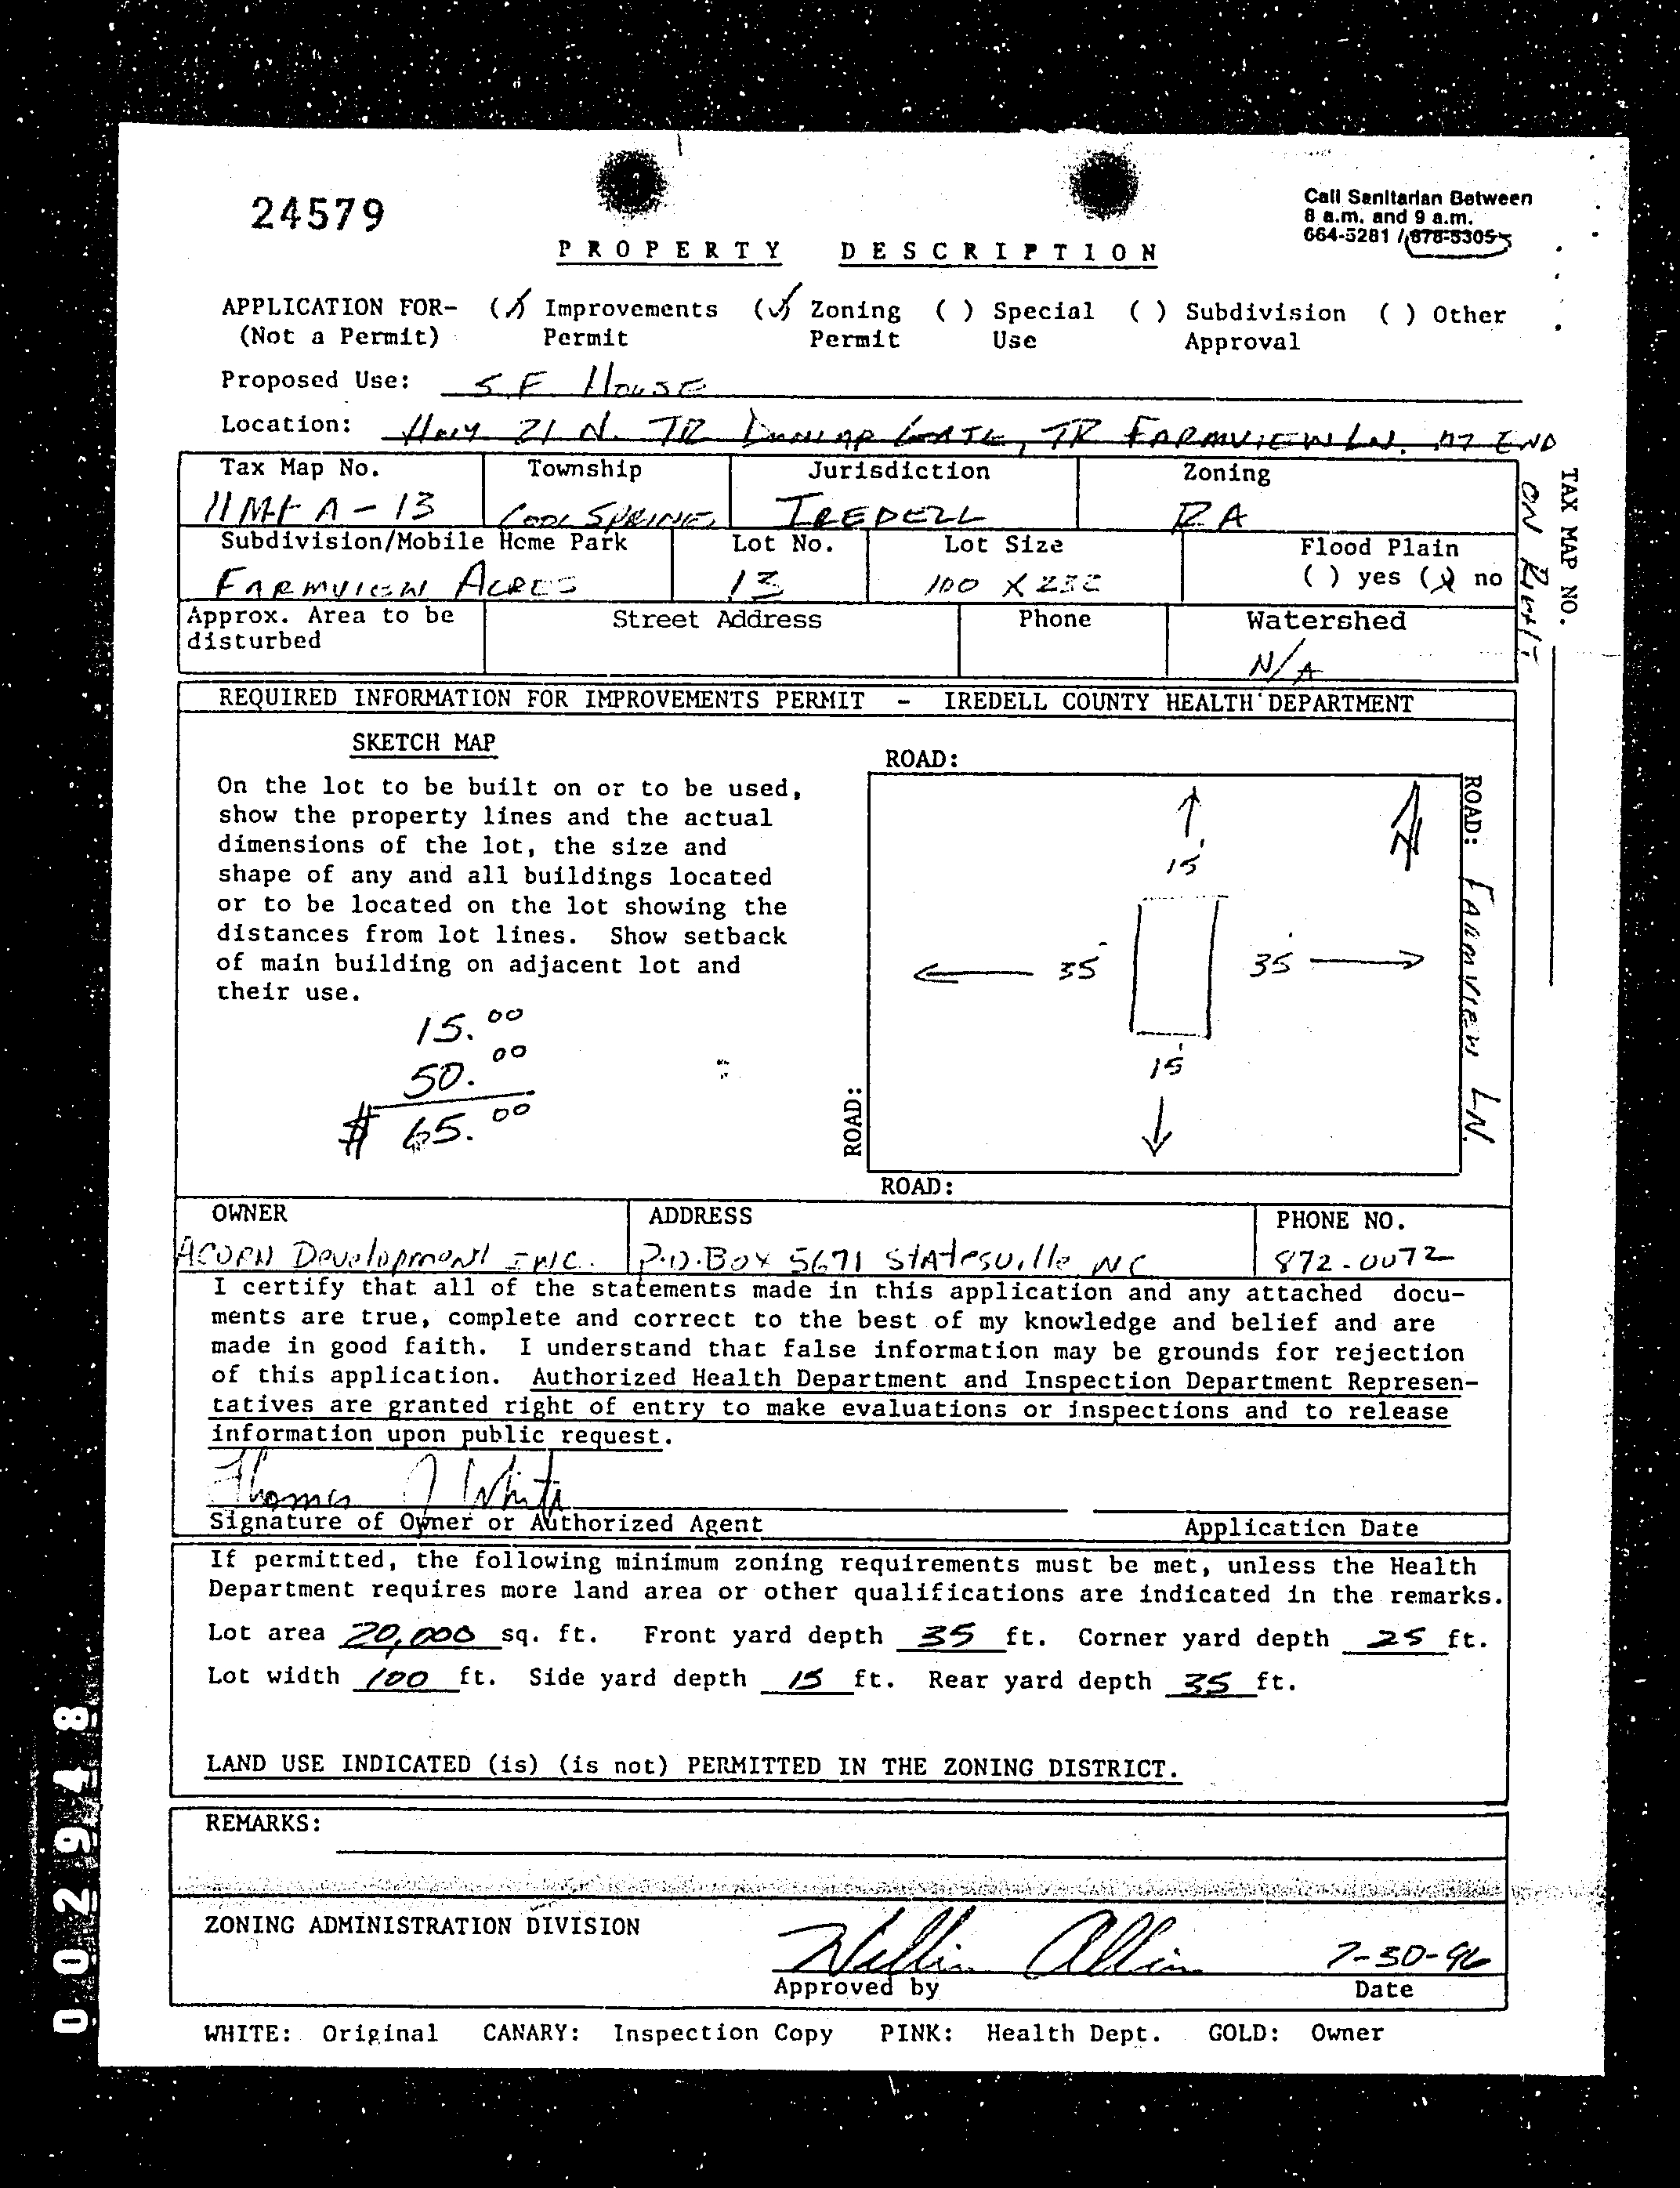 24579
Call Sanitarian Between
8 a.m. and 9 a.m.
664-5281 / 878-5305
PROPERTY DESCRIPTION
APPLICATION FOR- (✓) Improvements (✓) Zoning ( ) Special ( ) Subdivision ( ) Other
(Not a Permit) Permit Permit Use Approval
Proposed Use: S.F. HOUSE
Location: Hwy 21 N. TR DUNLAP GATE, TR FARMVIEW LN. AT END
ON RIGHT
TAX MAP NO.
Tax Map No. Township Jurisdiction Zoning
A-13 COOL SPRING IREDELL RA
Subdivision/Mobile Home Park Lot No. Lot Size Flood Plain
FARMVIEW ACRES 13 100 X 232 ( ) yes (X) no
Approx. Area to be Street Address Phone Watershed
disturbed
N/A
REQUIRED INFORMATION FOR IMPROVEMENTS PERMIT - IREDELL COUNTY HEALTH DEPARTMENT
SKETCH MAP
On the lot to be built on or to be used,
show the property lines and the actual
dimensions of the lot, the size and
shape of any and all buildings located
or to be located on the lot showing the
distances from lot lines. Show setback
of main building on adjacent lot and
their use.
15.00
50.00
$ 65.00
ROAD:
N
15'
35' 35'
15'
ROAD: FARMVIEW LN.
ROAD:
ROAD:
OWNER ADDRESS PHONE NO.
ACORN Development INC. P.O. Box 5671 Statesville NC 872-0072
I certify that all of the statements made in this application and any attached docu-
ments are true, complete and correct to the best of my knowledge and belief and are
made in good faith. I understand that false information may be grounds for rejection
of this application. Authorized Health Department and Inspection Department Represen-
tatives are granted right of entry to make evaluations or inspections and to release
information upon public request.
Thomas J White
Signature of Owner or Authorized Agent Application Date
If permitted, the following minimum zoning requirements must be met, unless the Health
Department requires more land area or other qualifications are indicated in the remarks.
Lot area 20,000 sq. ft. Front yard depth 35 ft. Corner yard depth 25 ft.
Lot width 100 ft. Side yard depth 15 ft. Rear yard depth 35 ft.
LAND USE INDICATED (is) (is not) PERMITTED IN THE ZONING DISTRICT.
REMARKS:
ZONING ADMINISTRATION DIVISION
7-30-96
Approved by Date
WHITE: Original CANARY: Inspection Copy PINK: Health Dept. GOLD: Owner
002948